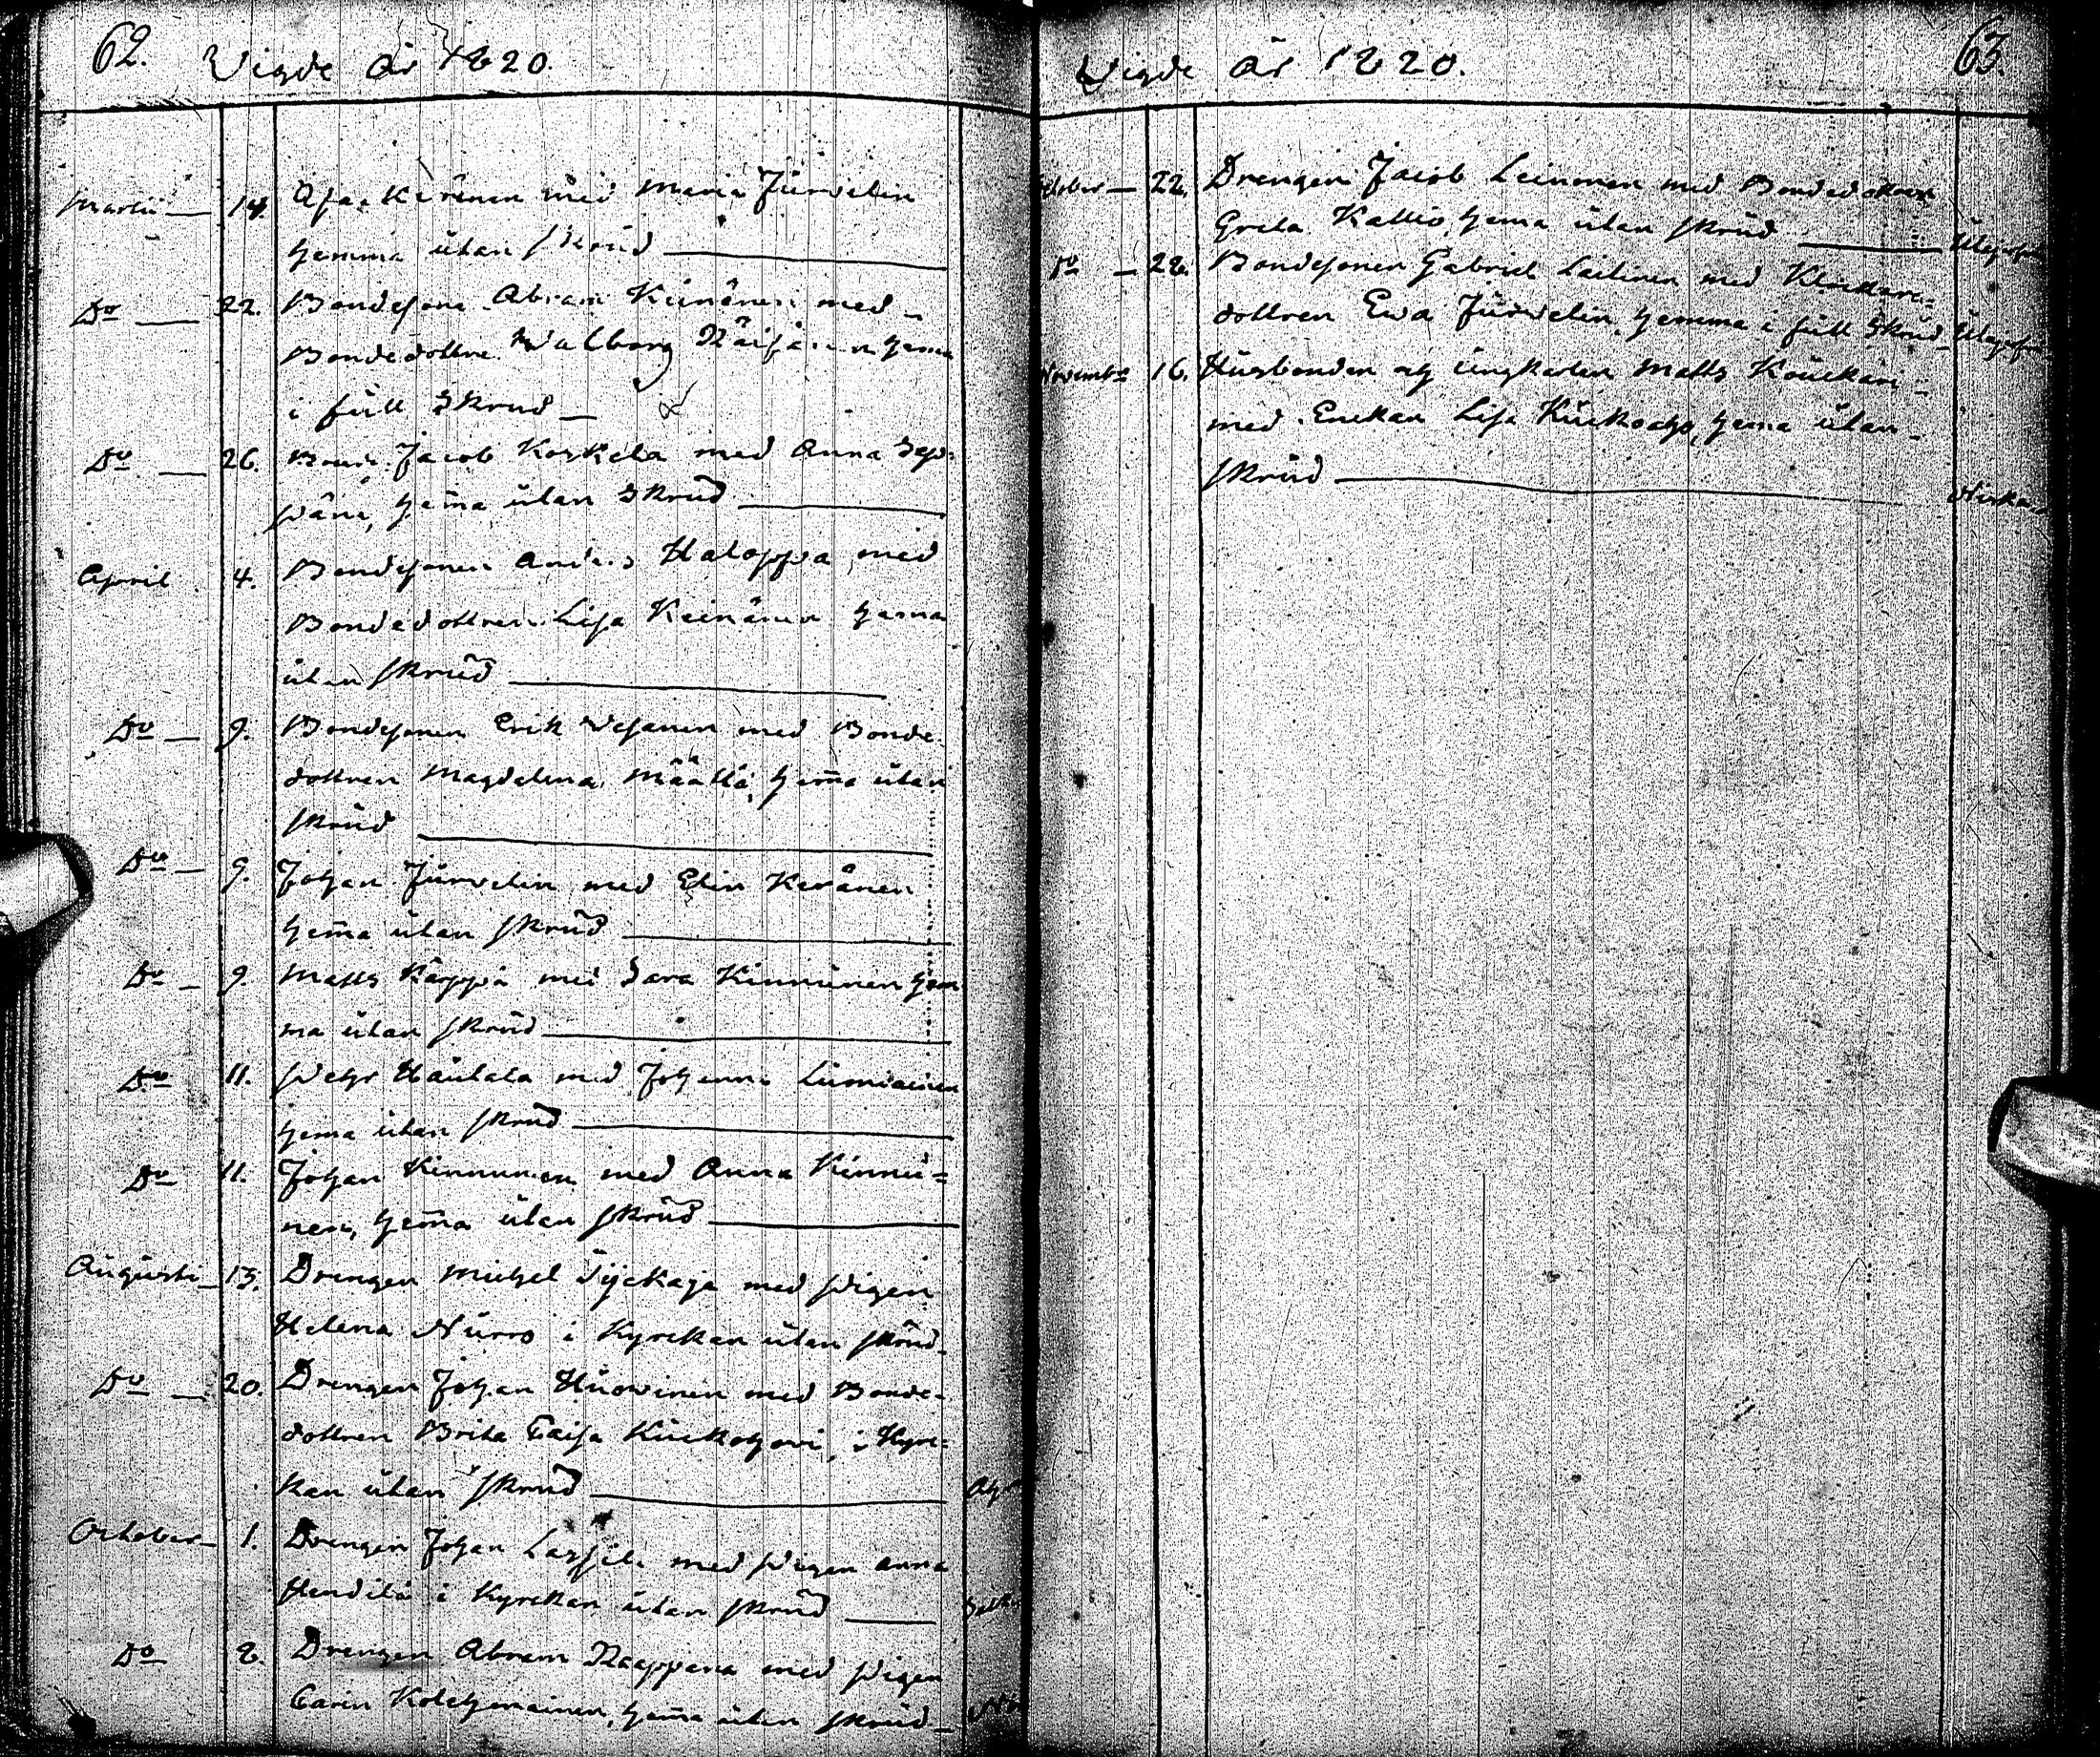 62.
Vigde År 1820.
Martii — 14. Åfa. Keränen med Maria Jürvelin
hemma utan skrud —
Do — 22. Bondesone Abram Keinänen med
Bondedottre Walborg Räisänen hema
i full Skrud —
Do — 26. Bond. Jacob Koskela med Anna Sep-
pänä, hema utan Skrud —
April 4. Bondesonen Anders Haloppa med
Bondedottren Lisa Keinänen hema
utan skrud —
Do — 9. Bondesonen Erik Vesanen med Bonde-
dottren Magdalena Määttä, hema utan
skrud —
Do — 9. Johan Jürvelin med Elin Keränen
hema utan skrud —
Do — 9. Matts Kärppä med Sara Kinnunen hem
ma utan skrud —
Do 11. Pehr Haulala med Johanna Lumiainen
hema utan skrud —
Do 11. Johan Kinnunen med Anna Kinnu=
nen, hema utan skrud —
Augusti — 13. Drengen Michel Tyckäja med pigan
Helena Nurro i Kyrckan utan skrud.
Do — 20. Drengen Johan Huovinen med Bonde-
dottren Brita Caisa Kuckohovi, i Kyrc=
kan utan skrud —
October — 1. Drengen Johan Lassila med pigan Anna
Hendilä i Kyrckan utan skrud —
Do 8. Drengen Abram Raappana med pigan
Carin Kolehmainen, hema utan skrud —
Vigde År 1820.
63.
October — 22. Drengen Jacob Leinonen med Bondedottren
Greta Kallio, hema utan skrud —
Do — 22. Bondesonen Gabriel Laitinen med Klockare=
dottren Ewa Jürvelin, hemma i full Skrud
Novembr 16. Husbonden och ungkarlen Matts Kouckari
med Enckan Lisa Kuckoaho, hema utan
skrud —